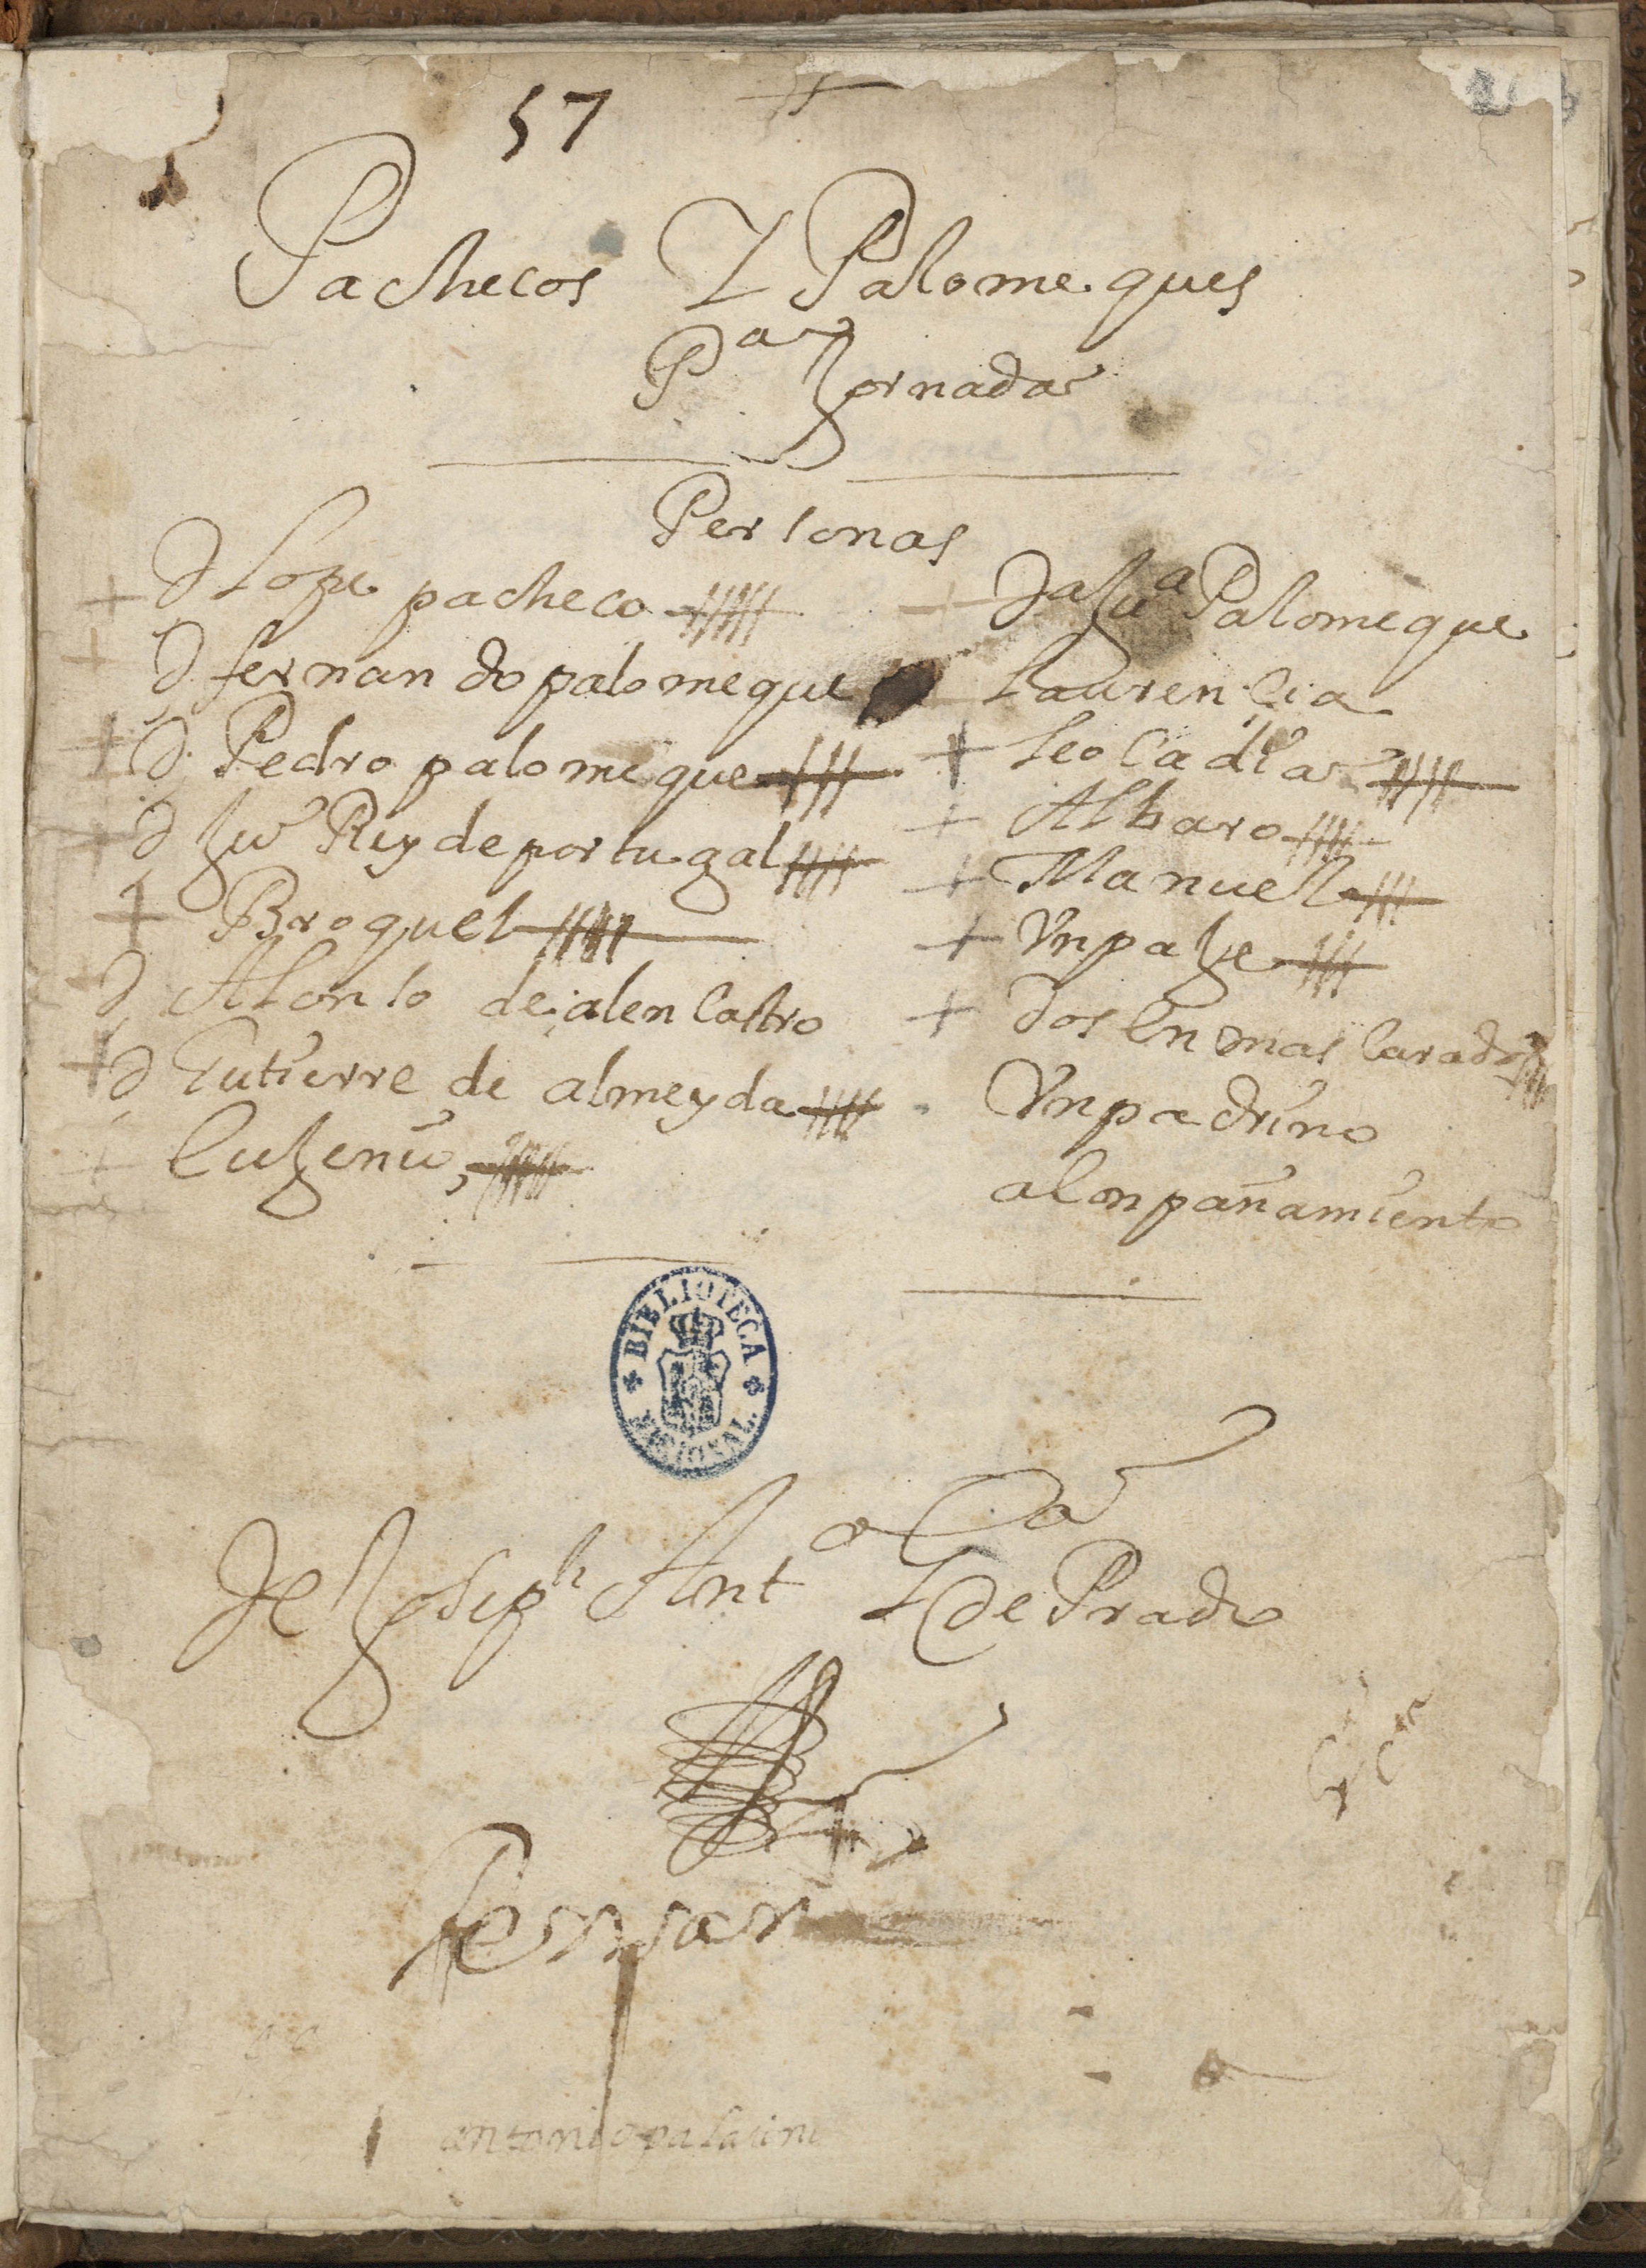 57
Pachecos Y Palomeques
Pa Jornada
Personas
D Lope pacheco
D fernando palomeque
D Pedro palomeque
D Juo Rey de portugal
Broquel
D Alonso de alencastro
D Gutierre de almeyda
Eujenio
Da Jua Palomeque
Laurencia
Leocadia
Albaro
Manuel
Vn paje
Dos Enmascarados
Vn padrino
aconpañamiento
BIBLIOTECA NACIONAL
De Joseph Anto Ga de Prado
antonio